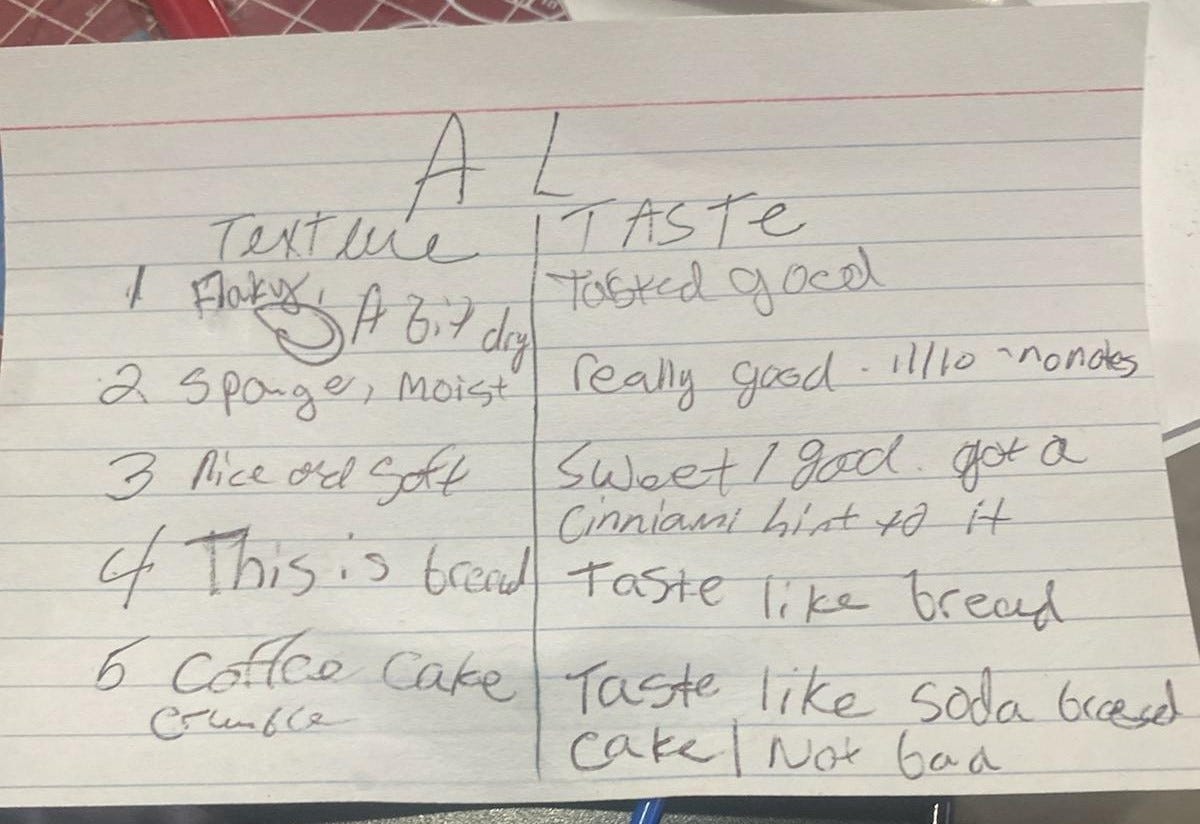 A L
Texture | TASTE
1 Flaky, A Bit dry | Tasted good
2 Sponge, Moist | really good. 11/10 - no notes
3 Nice and Soft | Sweet / good. got a
Cinniami hint to it
4 This is bread | Taste like bread
5 Coffee Cake | Taste like soda bread
crumble | cake | Not bad